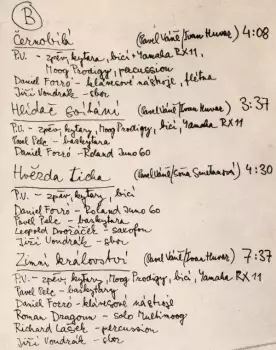 B
Černobílá (Pavel Váně/Ivan Huvar) 4:08
P.V. - zpěv, kytara, bicí + Yamaha RX11,
Moog Prodigy, percussion
Daniel Forró - klávesové nástroje, flétna
Jiří Vondrák - sbor
Hlídač svítání (Pavel Váně/Ivan Huvar) 3:37
P.V. - zpěv, kytary, Moog Prodigy, bicí, Yamaha RX11
Pavel Pelc - baskytara
Daniel Forró - Roland Juno 60
Hvězda ticha (Pavel Váně/Soňa Smetanová) 4:30
P.V. - zpěv, kytary, bicí
Daniel Forró - Roland Juno 60
Pavel Pelc - baskytara
Leopold Dvořáček - saxofon
Jiří Vondrák - sbor
Zimní království (Pavel Váně/Ivan Huvar) 7:37
P.V. - zpěv, kytary, Moog Prodigy, bicí, Yamaha RX11
Pavel Pelc - baskytary
Daniel Forró - klávesové nástroje
Roman Dragoun - solo Multimoog
Richard Lašek - percussion
Jiří Vondrák - sbor